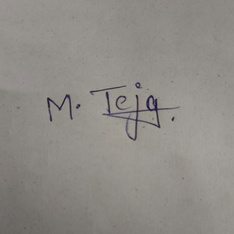 M. Teja.